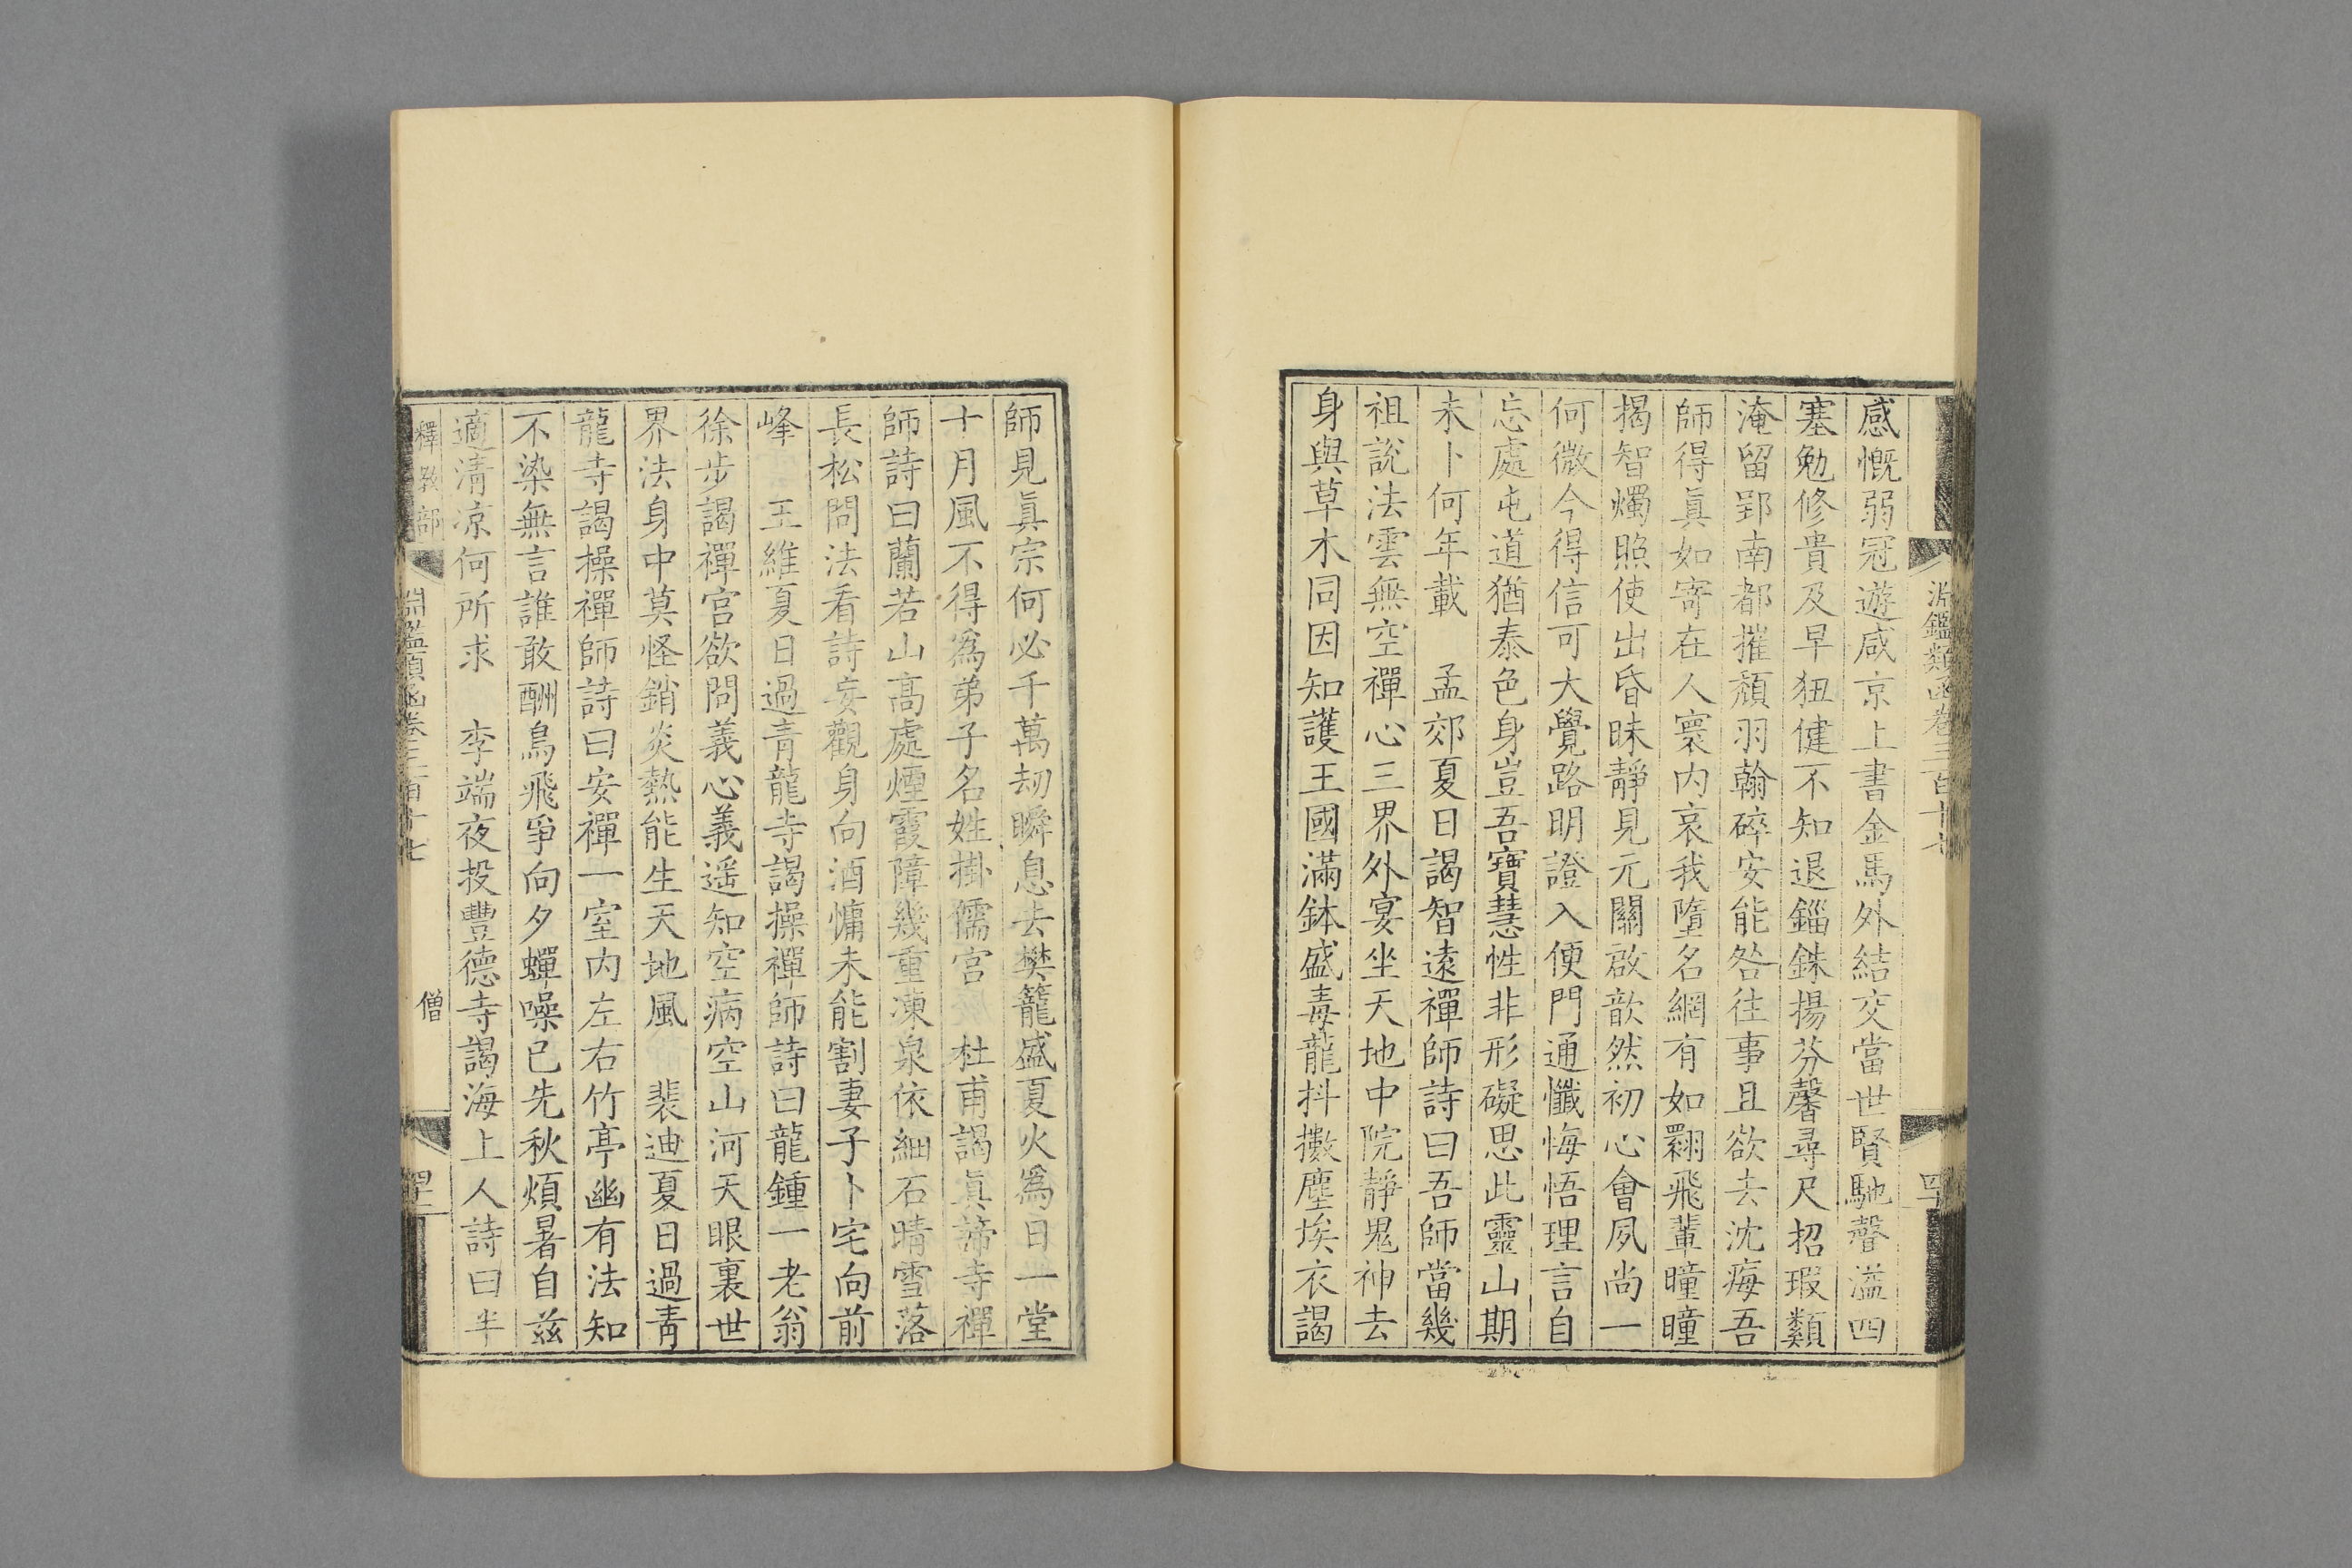 淵鑑類函卷三百十七
感慨弱冠遊咸京上書金馬外結交當世賢馳聲溢四
塞勉修貴及早狃健不知退錙銖揚芬馨尋尺招瑕纇
淹留郢南都摧頹羽翰碎安能咎往事且欲去沈痗吾
師得眞如寄在人寰內哀我墮名網有如翾飛輩曈曈
揭智燭照使出昏昧靜見元關啟歆然初心會夙尚一
何微今得信可大覺路明證入便門通懺悔悟理言自
忘處屯道猶泰色身豈吾寶慧性非形礙思此靈山期
未卜何年載　孟郊夏日謁智遠禪師詩曰吾師當幾
祖說法雲無空禪心三界外宴坐天地中院靜鬼神去
身與草木同因知護王國滿鉢盛毒龍抖擻塵埃衣謁
師見眞宗何必千萬劫瞬息去樊籠盛夏火爲日一堂
十月風不得爲弟子名姓掛儒宮　杜甫謁眞諦寺禪
師詩曰蘭若山高處煙霞障幾重凍泉依細石晴雪落
長松問法看詩妄觀身向酒慵未能割妻子卜宅向前
峰　王維夏日過青龍寺謁操禪師詩曰龍鍾一老翁
徐步謁禪宮欲問義心義遥知空病空山河天眼裏世
界法身中莫怪銷炎熱能生天地風　裴迪夏日過青
龍寺謁操禪師詩曰安禪一室內左右竹亭幽有法知
不染無言誰敢酬鳥飛爭向夕蟬噪已先秋煩暑自茲
適清凉何所求　李端夜投豐德寺謁海上人詩曰半
釋教部　淵鑑類函卷三百十七　僧